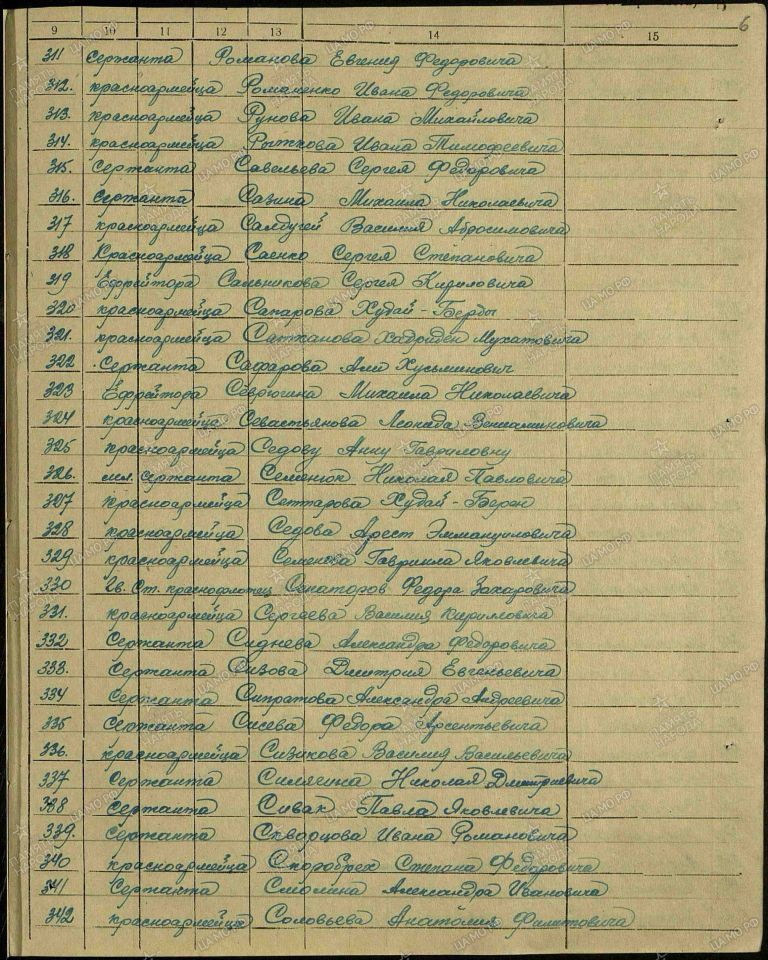 6
9 10 11 12 13 14 15
311 сержанта Романова Евгения Федоровича
312. красноармейца Романенко Ивана Федоровича
313. красноармейца Рунова Ивана Михайловича
314. красноармейца Рыжкова Ивана Тимофеевича
315. сержанта Савельева Сергея Федоровича
316. сержанта Сазина Михаила Николаевича
317 красноармейца Салдугей Василия Абросимовича
318 Красноармейца Саенко Сергея Степановича
319 Ефрейтора Сальникова Сергея Кириловича
320 красноармейца Сапарова Худай-Берды
321. красноармейца Сатжанова Мухатовича
322 Сержанта Сафарова Али Хусьминович
323 Ефрейтора Севрюгина Михаила Николаевича
324 красноармейца Севастьянова Леонида Вениаминовича
325 красноармейца Седову Анну Гавриловну
326. мл. сержанта Семенюк Николая Павловича
327 красноармейца Сеттарова Худай-Берен
328 красноармейца Седова Арест Эммануиловича
329 красноармейца Семенова Гавриила Яковлевича
330 Гв. Ст. краснофлотец Сенаторов Федора Захаровича
331. красноармейца Сергаева Василия Кириловича
332 Сержанта Сиднева Александра Федоровича
333. Сержанта Сизова Дмитрия Евгеньевича
334 Сержанта Сипратова Александра Андреевича
335 Сержанта Сисева Федора Арсентьевича
336. красноармейца Сизикова Василия Васильевича
337 Сержанта Силякина Николая Дмитриевича
338 Сержанта Сивак Павла Яковлевича
339. Сержанта Скварцова Ивана Романовича
340 красноармейца Скоробрех Степана Федоровича
341 Сержанта Смолина Александра Ивановича
342 красноармейца Соловьева Анатолия Филитовича